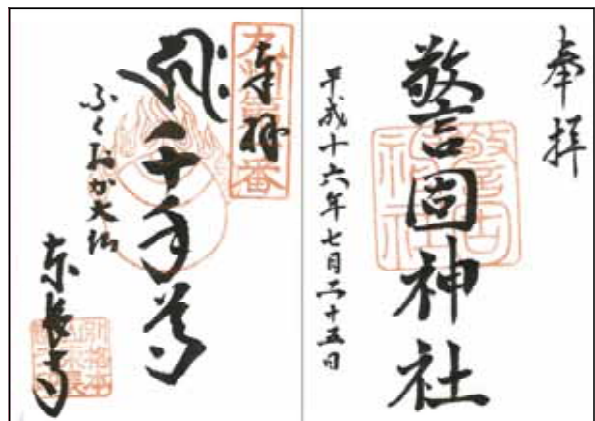 奉拝
警固神社
平成十六年七月二十五日
奉拝
千手尊
ふくおか大仏
東長寺